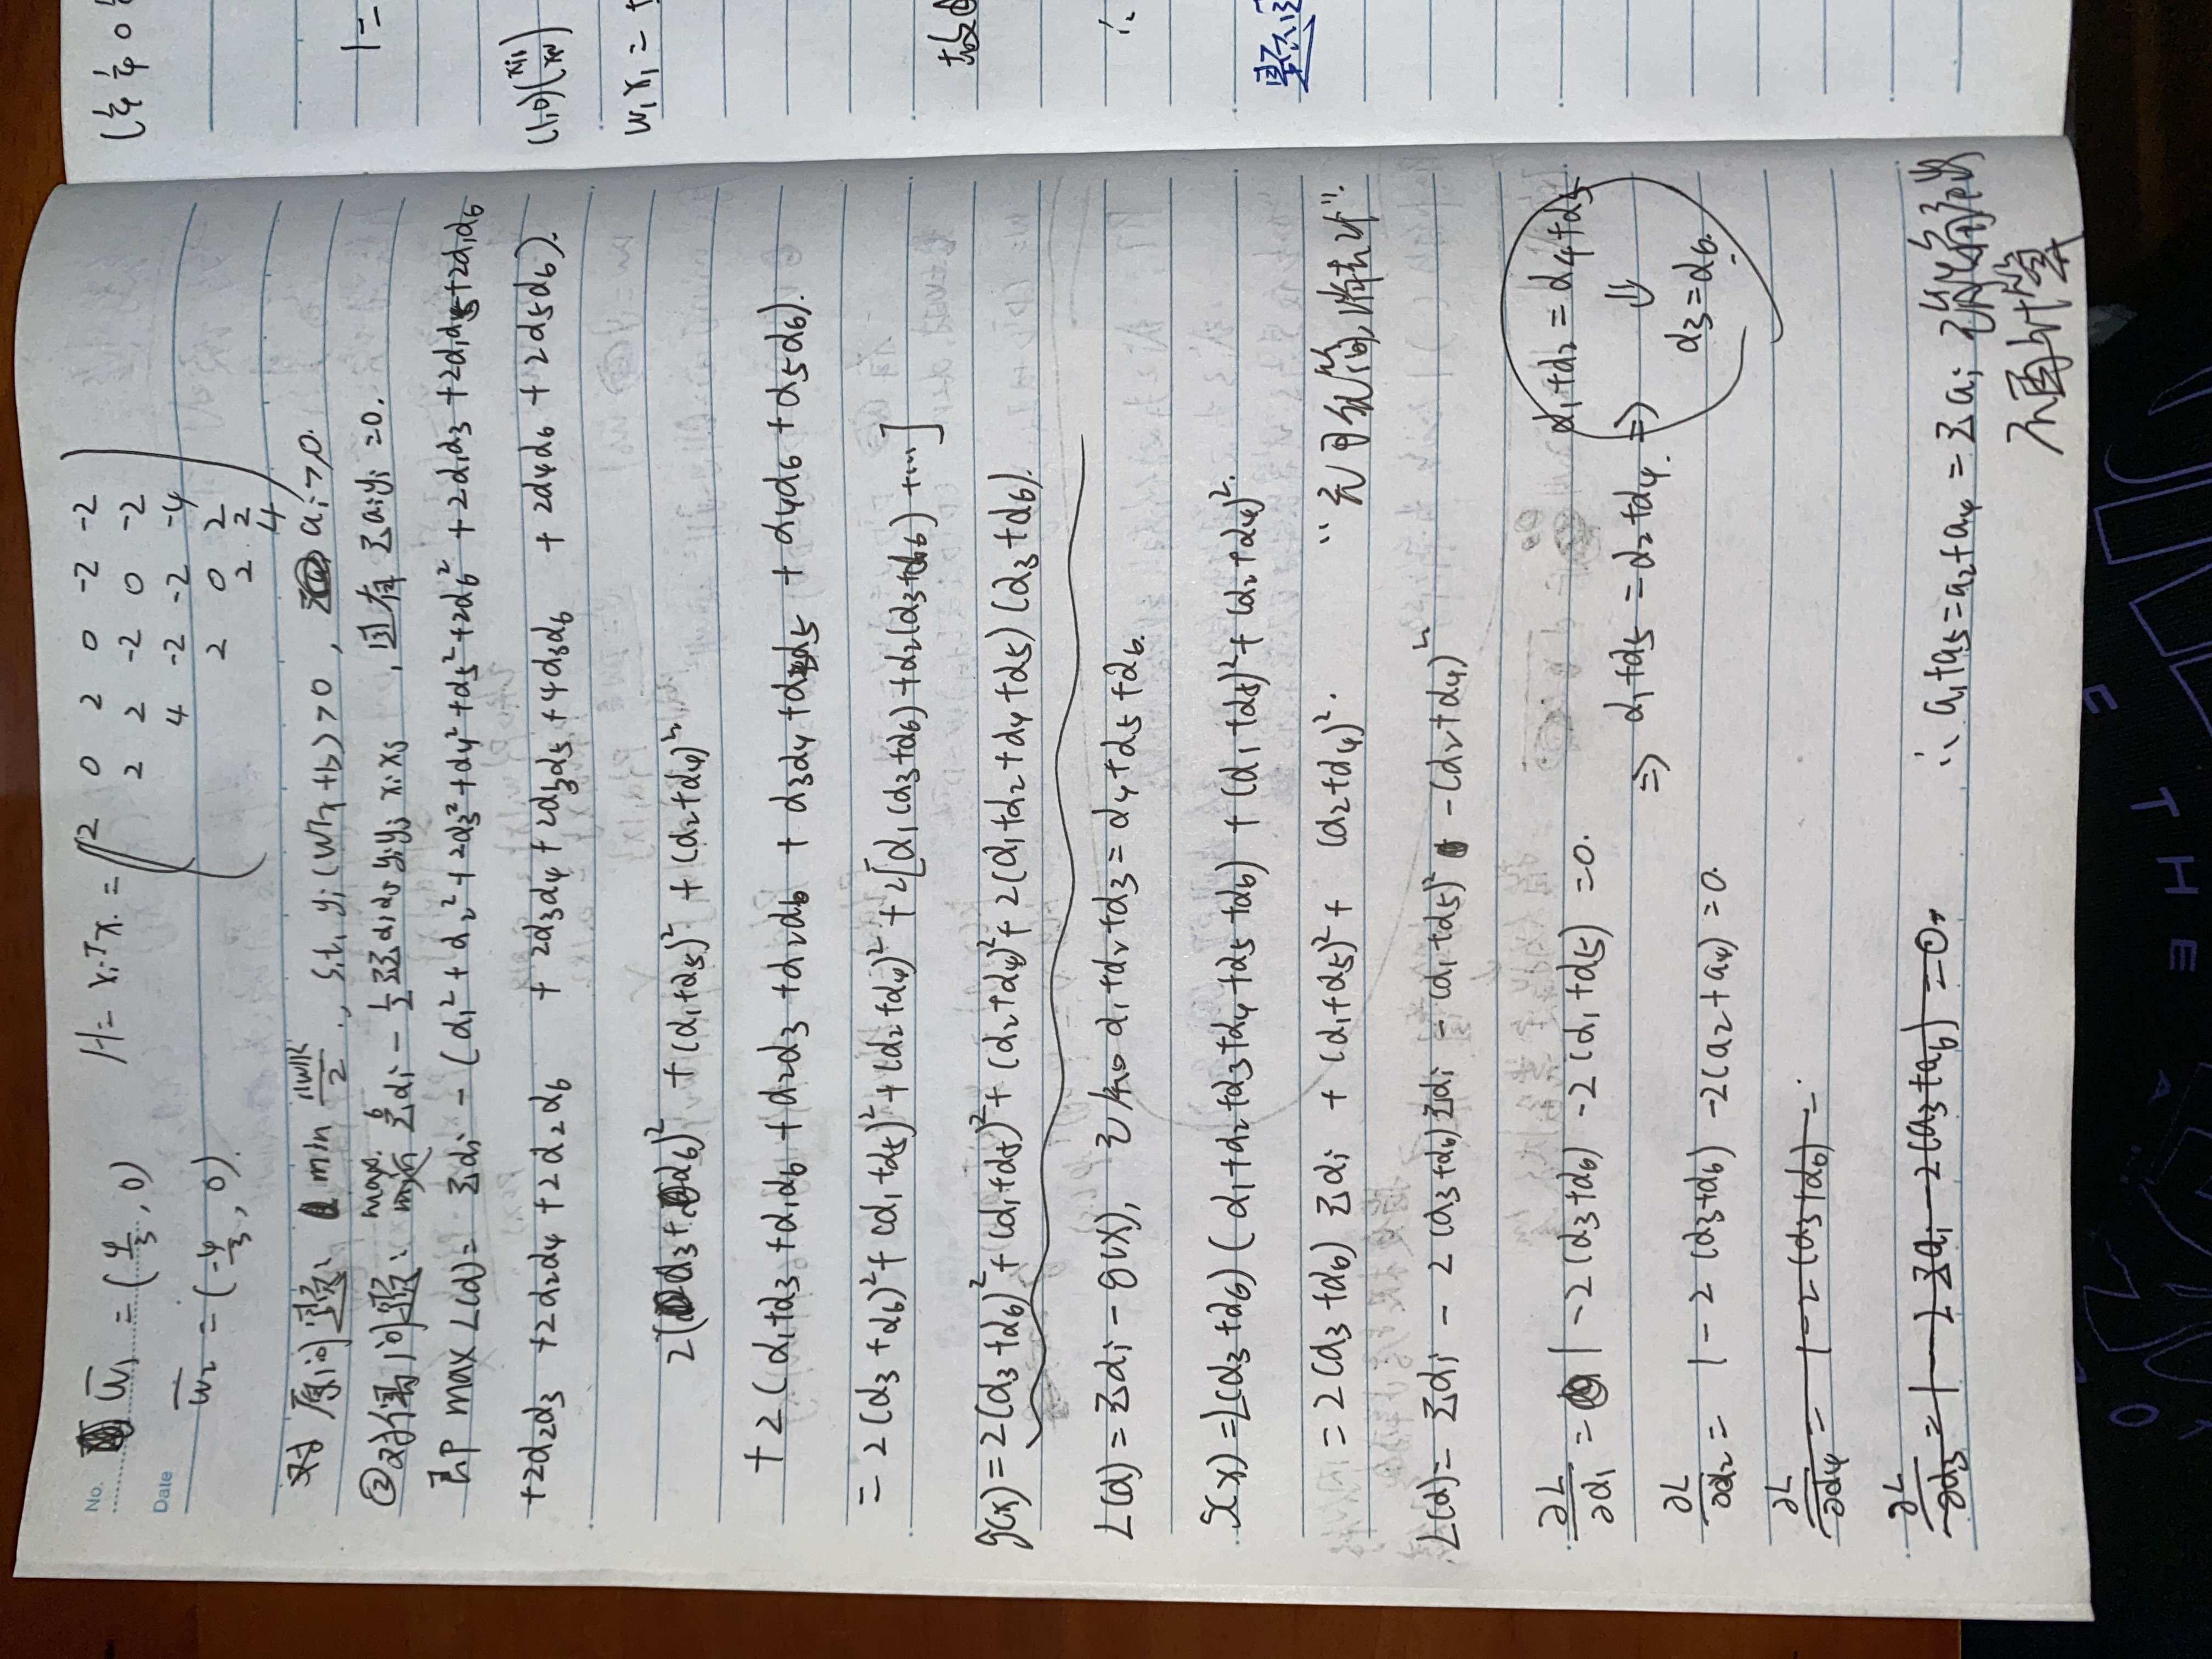 No.
Date
w̄₁ = (4/3, 0)
w̄₂ = (-4/3, 0).
H = xᵢᵀx. =
2 0 2 0 -2 -2
2 2 -2 0 -2
4 -2 -2 -4
2 0 2
2 2
4
对原问题: min ||w||²/2 ., s.t. yᵢ(wᵀx+b)>0, aᵢ>0.
②对偶问题: max. Σ⁶αᵢ - ½ΣΣαᵢαⱼyᵢyⱼxᵢxⱼ , 且有 Σaᵢyᵢ=0.
即 max L(α)= Σαᵢ - (α₁²+α₂²+2α₃²+α₄²+α₅²+2α₆²+2α₁α₃+2α₁α₅+2α₁α₆
+2α₂α₃ +2α₂α₄+2α₂α₆ + 2α₃α₄+2α₃α₅+4α₃α₆ +2α₄α₆+2α₅α₆).
2(α₃+α₆)² +(α₁+α₅)² +(α₂+α₄)²
+2(α₁+α₃+α₁α₆+α₂α₃+α₂α₆+α₃α₄+α₃α₅+α₄α₆+α₅α₆).
=2(α₃+α₆)²+(α₁+α₅)²+(α₂+α₄)²+2[α₁(α₃+α₆)+α₂(α₃+α₆)+…]
g(x)=2(α₃+α₆)²+(α₁+α₅)²+(α₂+α₄)²+2(α₁+α₂+α₄+α₅)(α₃+α₆).
L(α)=Σαᵢ-g(x), 已知α₁+α₂+α₃=α₄+α₅+α₆.
g(x)=2(α₃+α₆)(α₁+α₂+α₃+α₄+α₅+α₆)+(α₁+α₅)²+(α₂+α₄)².
=2(α₃+α₆)Σαᵢ+(α₁+α₅)²+(α₂+α₄)².
L(α)=Σαᵢ-2(α₃+α₆)Σαᵢ-(α₁+α₅)²-(α₂+α₄)²
∂L/∂α₁=1-2(α₃+α₆)-2(α₁+α₅)=0.
⇒ α₁+α₅=α₂+α₄. ⇒
α₁+α₂=α₄+α₅
⇓
α₃=α₆.
∂L/∂α₂=1-2(α₃+α₆)-2(a₂+a₄)=0.
∂L/∂α₄=1-2(α₃+α₆)-
∂L/∂α₃=1-2Σaᵢ-2(a₃+a₆)=0.
∴ a₁+a₅=a₂+a₄=Σaᵢ
不再计算
(¼ ¼ 0
1=
(1,0)
w₁x₁=
故
∴